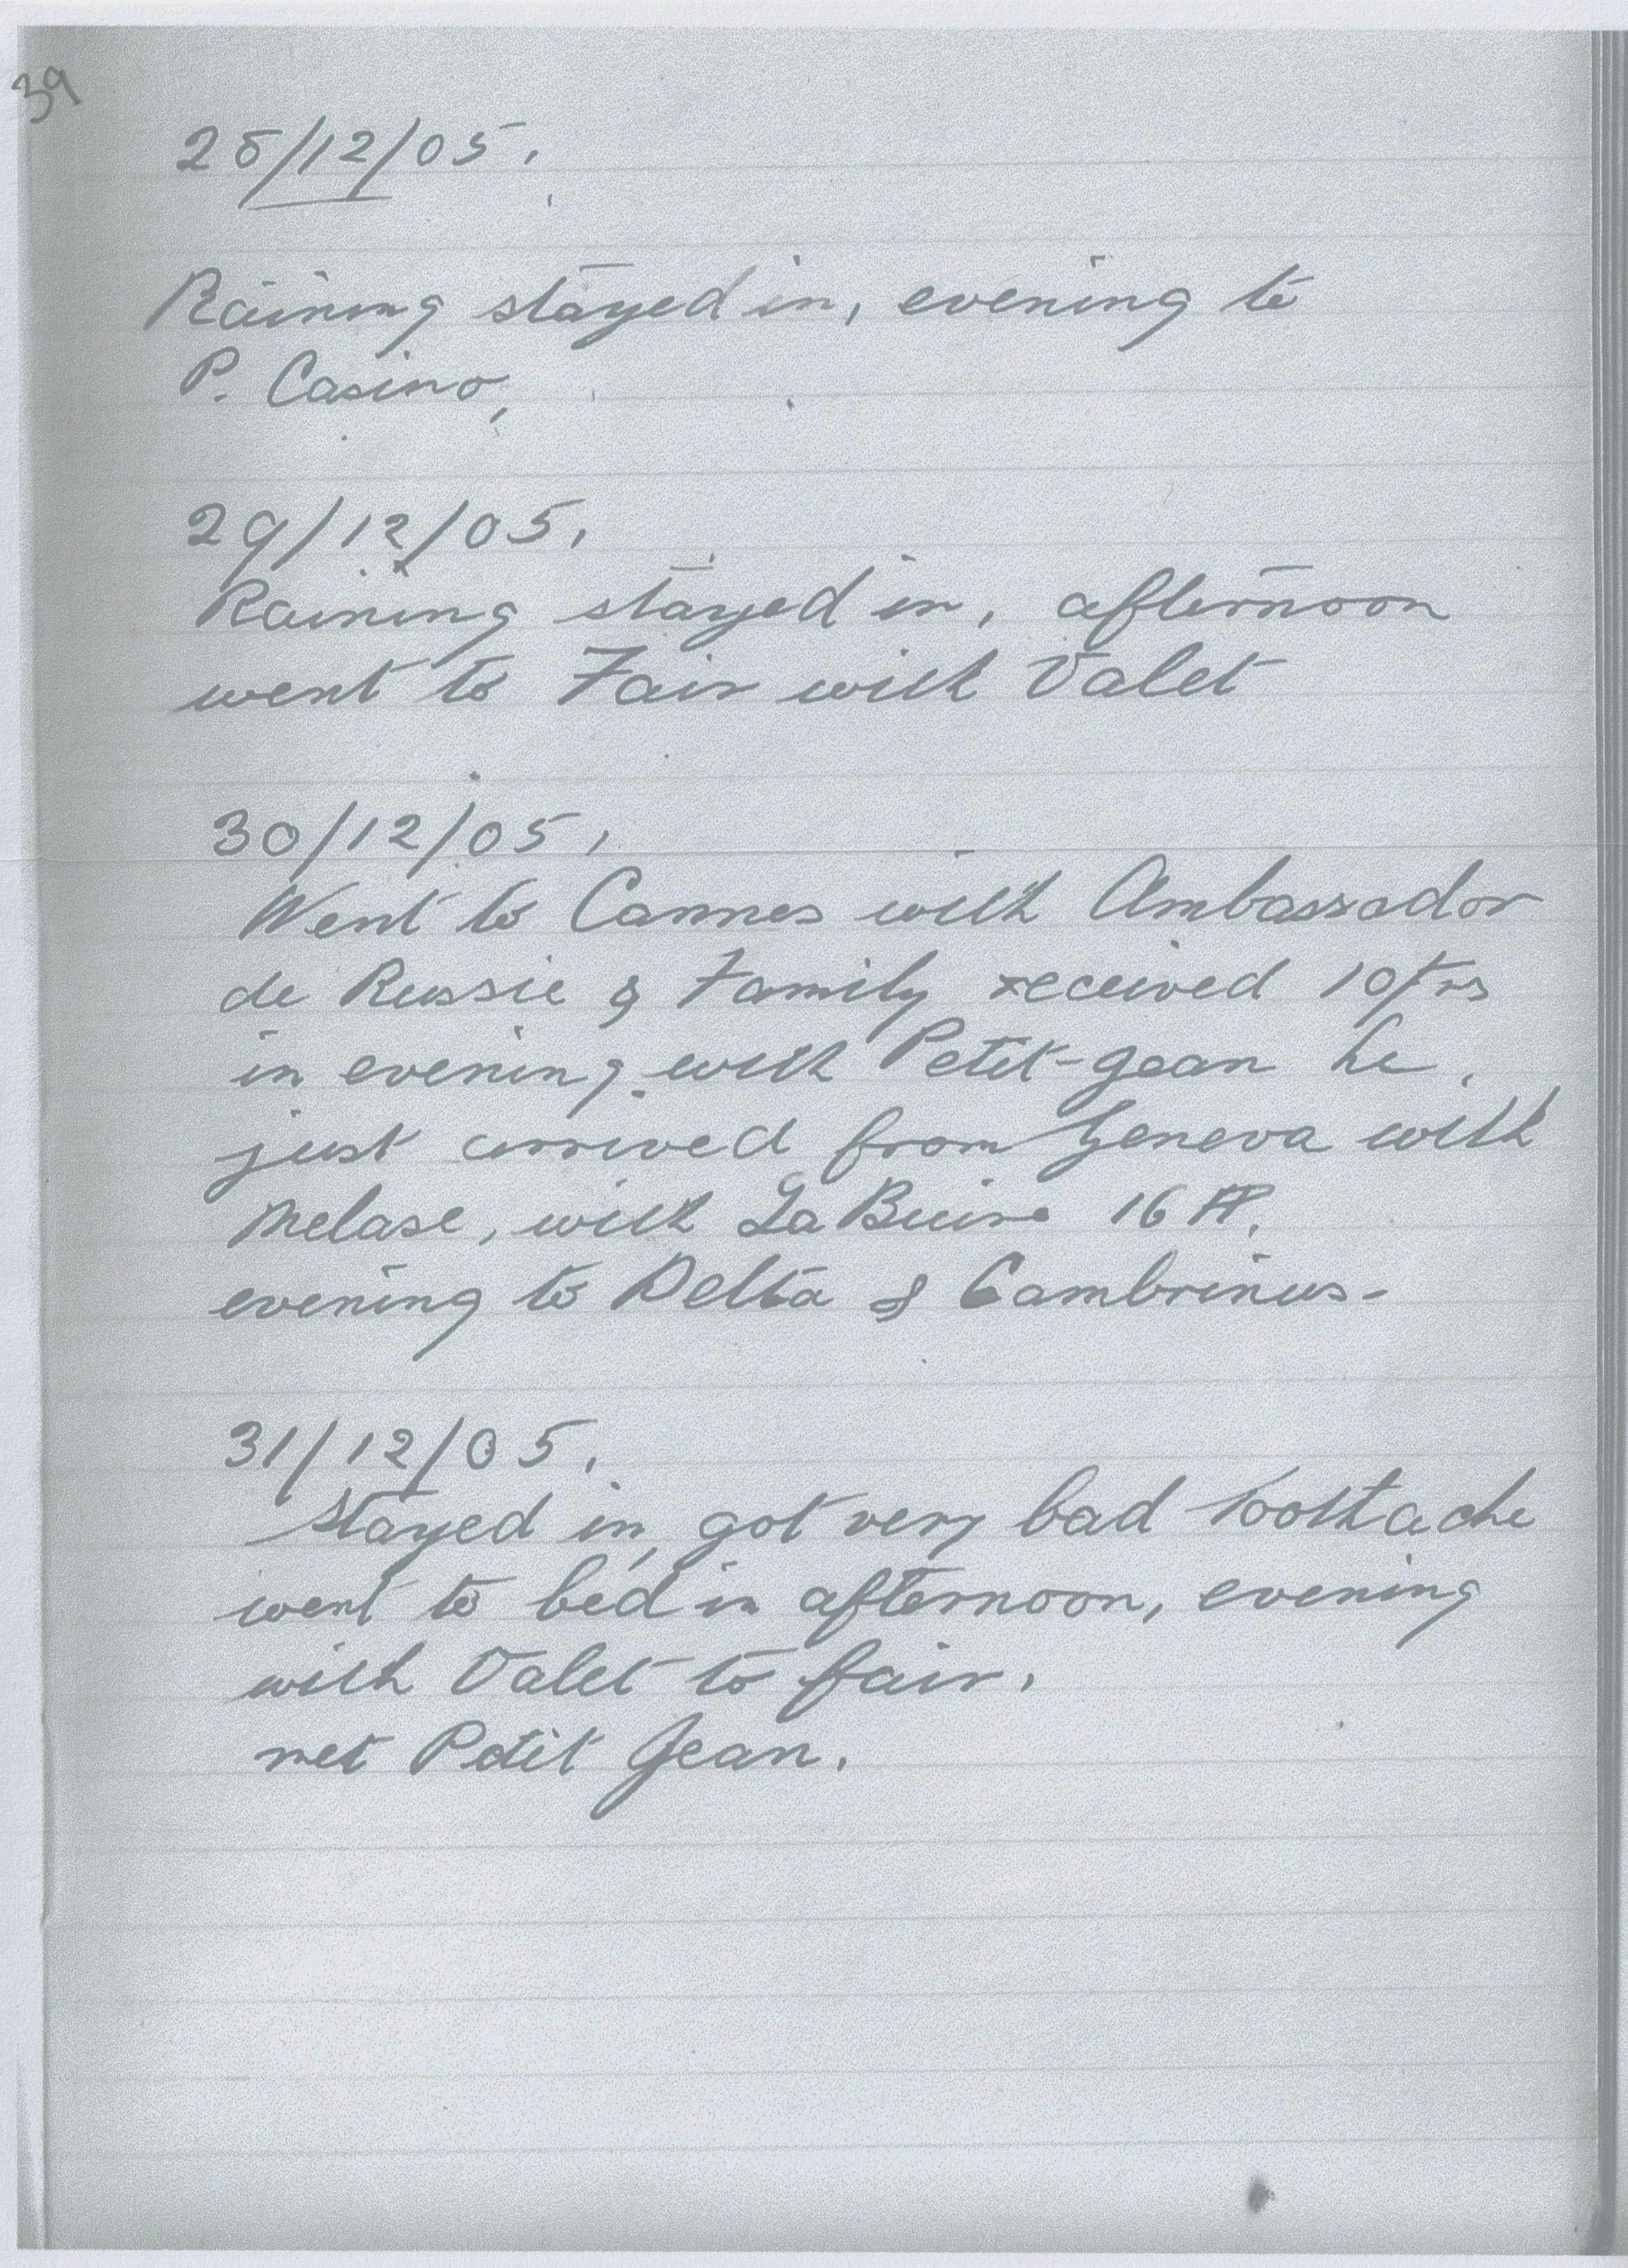 39
28/12/05.
Raining stayed in, evening to
P. Casino,
29/12/05.
Raining stayed in, afternoon
went to Fair with Valet
30/12/05.
Went to Cannes with Ambassador
de Russie & Family received 10frs
in evening with Petit-Jean he
just arrived from Geneva with
Melase, with La Buire 16 HP.
evening to Delta & Gambrinus-
31/12/05.
Stayed in, got very bad toothache
went to bed in afternoon, evening
with Valet to fair.
met Petit Jean.